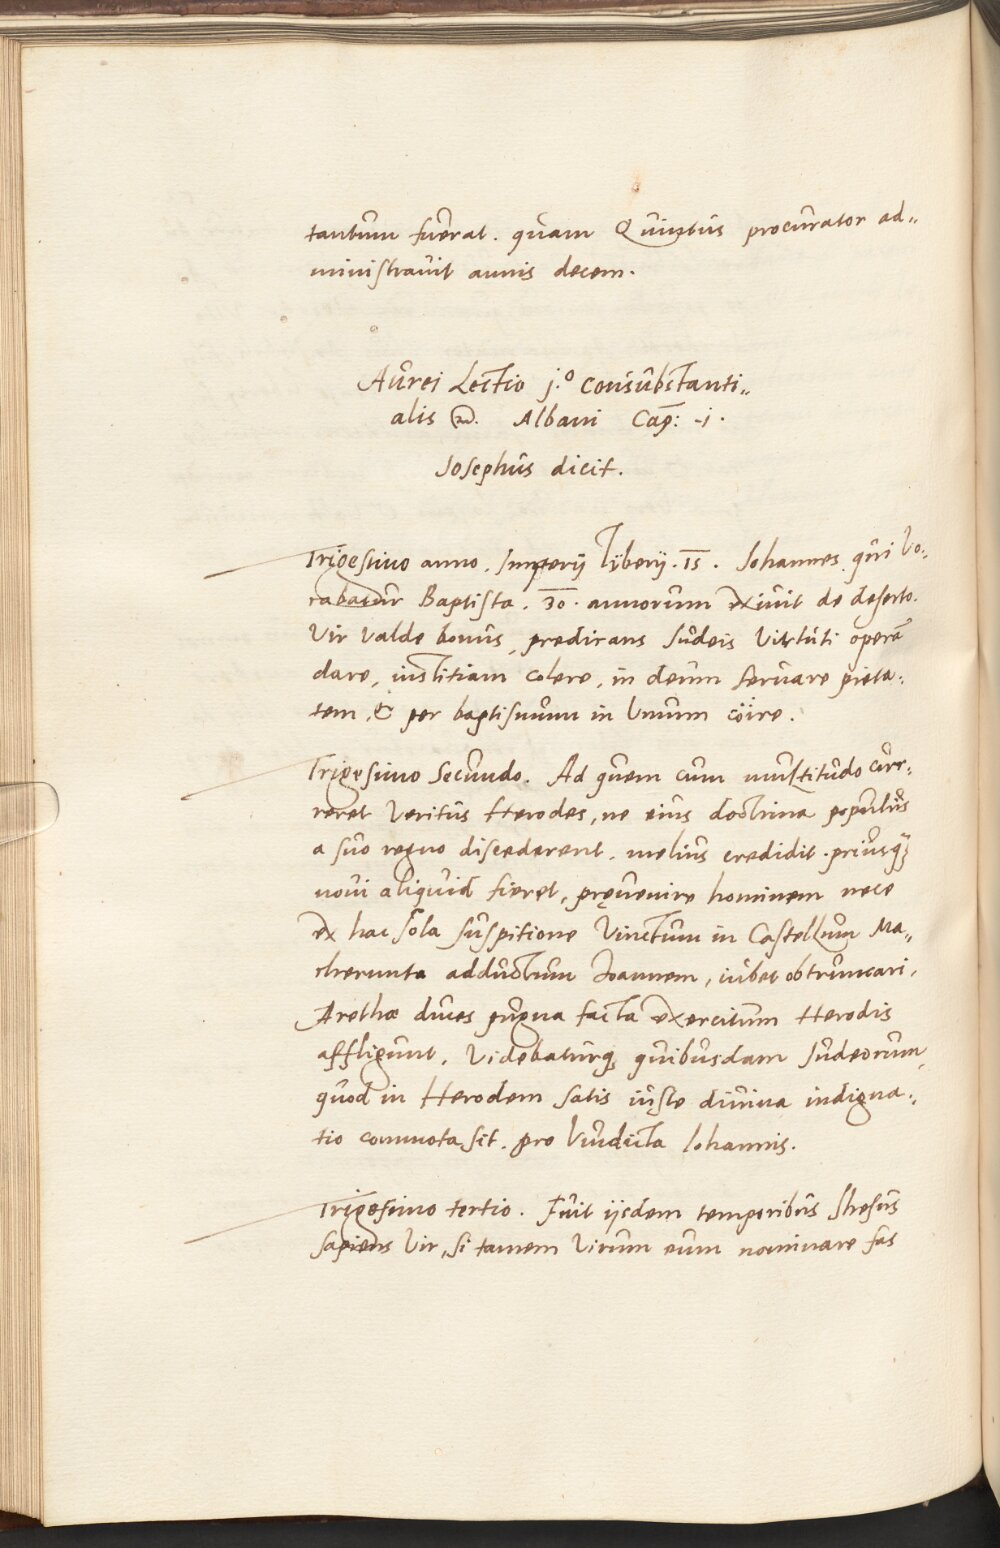 tantum fuerat. quam Quintus procurator ad„
ministravit annis decem.
Aurei Lectio j.º consubstanti„
alis Albani Cap: -j.
Josephus dicit.
Trigesimo anno. Imperij Tyberij. 15. Johannes, qui vo„
rabatur Baptista. 30. annorum exivit de deserto.
Vir valde bonus, predicans Judeis virtuti operā
dare, iustitiam colere, in deum servare pieta„
tem, & per baptismum in Unum coire.
Trigesimo Secundo. Ad quem cum multitudo curr„
reret veritus Herodes, ne eius doctrina populus
a suo regno discederent, melius credidit, priusq̃
novi aliquid fieret, pręvenire hominem nece
ex hac sola suspitione Vinctum in Castellum Ma„
cherunta adductum Joannem, iubet obtruncari,
Arethæ duces pugna facta exercitum Herodis
affligunt. Videbaturq; quibusdam Judeorum,
quod in Herodem satis iuste divina indigna„
tio commota sit, pro Vindicta Johannis.
Trigesimo tertio. Fuit ijsdem temporibus Jhesus
sapiens Vir, si tamen Virum eum nominare fas